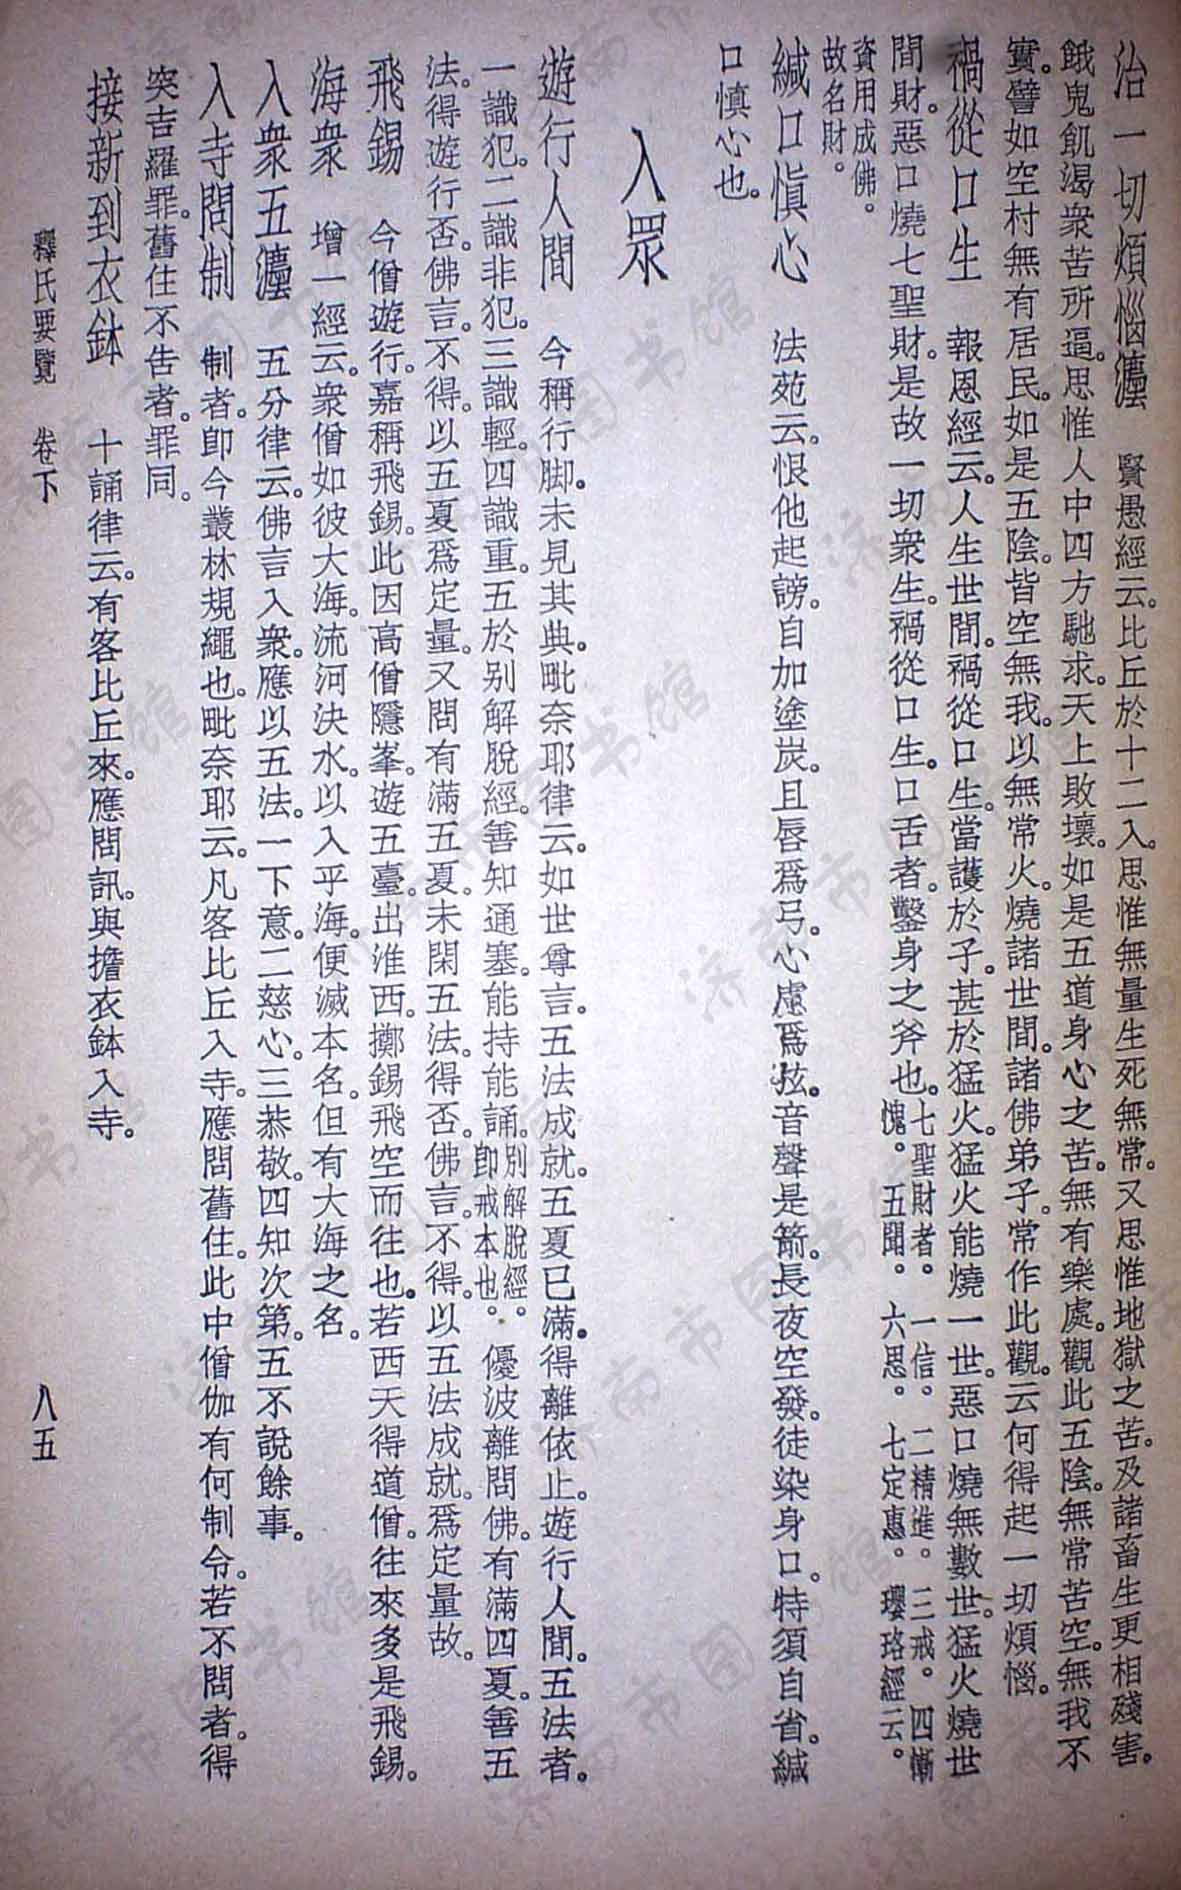 治一切煩惱瀍　賢愚經云。比丘於十二入。思惟無量生死無常。又思惟地獄之苦。及諸畜生更相殘害。
餓鬼飢渴衆苦所逼。思惟人中四方馳求。天上敗壞。如是五道身心之苦。無有樂處。觀此五陰。無常苦空。無我不
實。譬如空村無有居民。如是五陰。皆空無我。以無常火。燒諸世間。諸佛弟子。常作此觀。云何得起一切煩惱。
禍從口生　報恩經云。人生世間。禍從口生。當護於子。甚於猛火。猛火能燒一世。惡口燒無數世。猛火燒世
間財。惡口燒七聖財。是故一切衆生。禍從口生。口舌者。鑿身之斧也。七聖財者。一信。二精進。三戒。四慚
愧。五聞。六思。七定惠。瓔珞經云。
資用成佛。
故名財。
緘口慎心　法苑云。恨他起謗。自加塗炭。且唇爲弓。心慮爲弦。音聲是箭。長夜空發。徒染身口。特須自省。緘
口慎心也。
入眾
遊行人間　今稱行脚。未見其典。毗奈耶律云。如世尊言。五法成就。五夏已滿。得離依止。遊行人間。五法者。
一識犯。二識非犯。三識輕。四識重。五於别解脫經。善知通塞。能持能誦。别解脫經。
即戒本也。優波離問佛。有滿四夏。善五
法。得遊行否。佛言。不得。以五夏爲定量。又問有滿五夏。未閑五法。得否。佛言。不得。以五法成就。爲定量故。
飛錫　今僧遊行。嘉稱飛錫。此因高僧隱峯。遊五臺。出淮西。擲錫飛空而往也。若西天得道僧。往來多是飛錫。
海衆　增一經云。衆僧如彼大海。流河決水。以入乎海。便滅本名。但有大海之名。
入衆五瀍　五分律云。佛言入衆。應以五法。一下意。二慈心。三恭敬。四知次第。五不說餘事。
入寺問制　制者。卽今叢林規繩也。毗奈耶云。凡客比丘入寺。應問舊住。此中僧伽有何制令。若不問者。得
突吉羅罪。舊住不告者。罪同。
接新到衣鉢　十誦律云。有客比丘來。應問訊。與擔衣鉢入寺。
釋氏要覽　卷下　八五